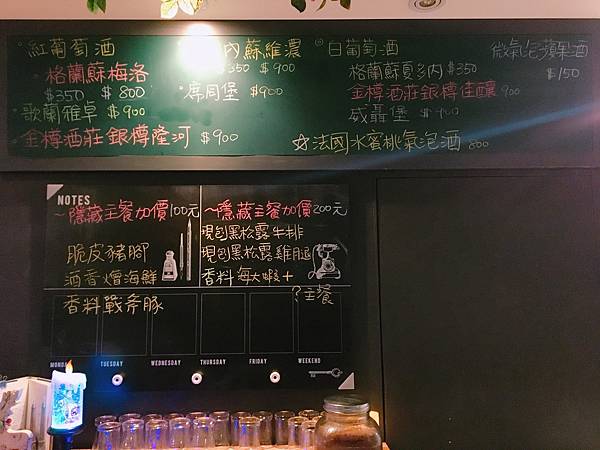 紅葡萄酒
格蘭蘇梅洛
$350 $800
歌蘭雅卓 $900
金樽酒莊銀樽隆河 $900
內蘇維濃
$350 $900
席同堡 $900
白葡萄酒
格蘭蘇夏多內 $350
金樽酒莊銀樽佳釀 900
威聶堡 $900
☆法國水蜜桃氣泡酒 800
微氣泡蘋果酒
$150
NOTES
~隱藏主餐加價100元
脆皮豬腳
酒香燴海鮮
香料戰斧豚
~隱藏主餐加價200元
現刨黑松露牛排
現刨黑松露雞腿
香料每大蝦+
?主餐
MONDAY
TUESDAY
WEDNESDAY
THURSDAY
FRIDAY
WEEKEND